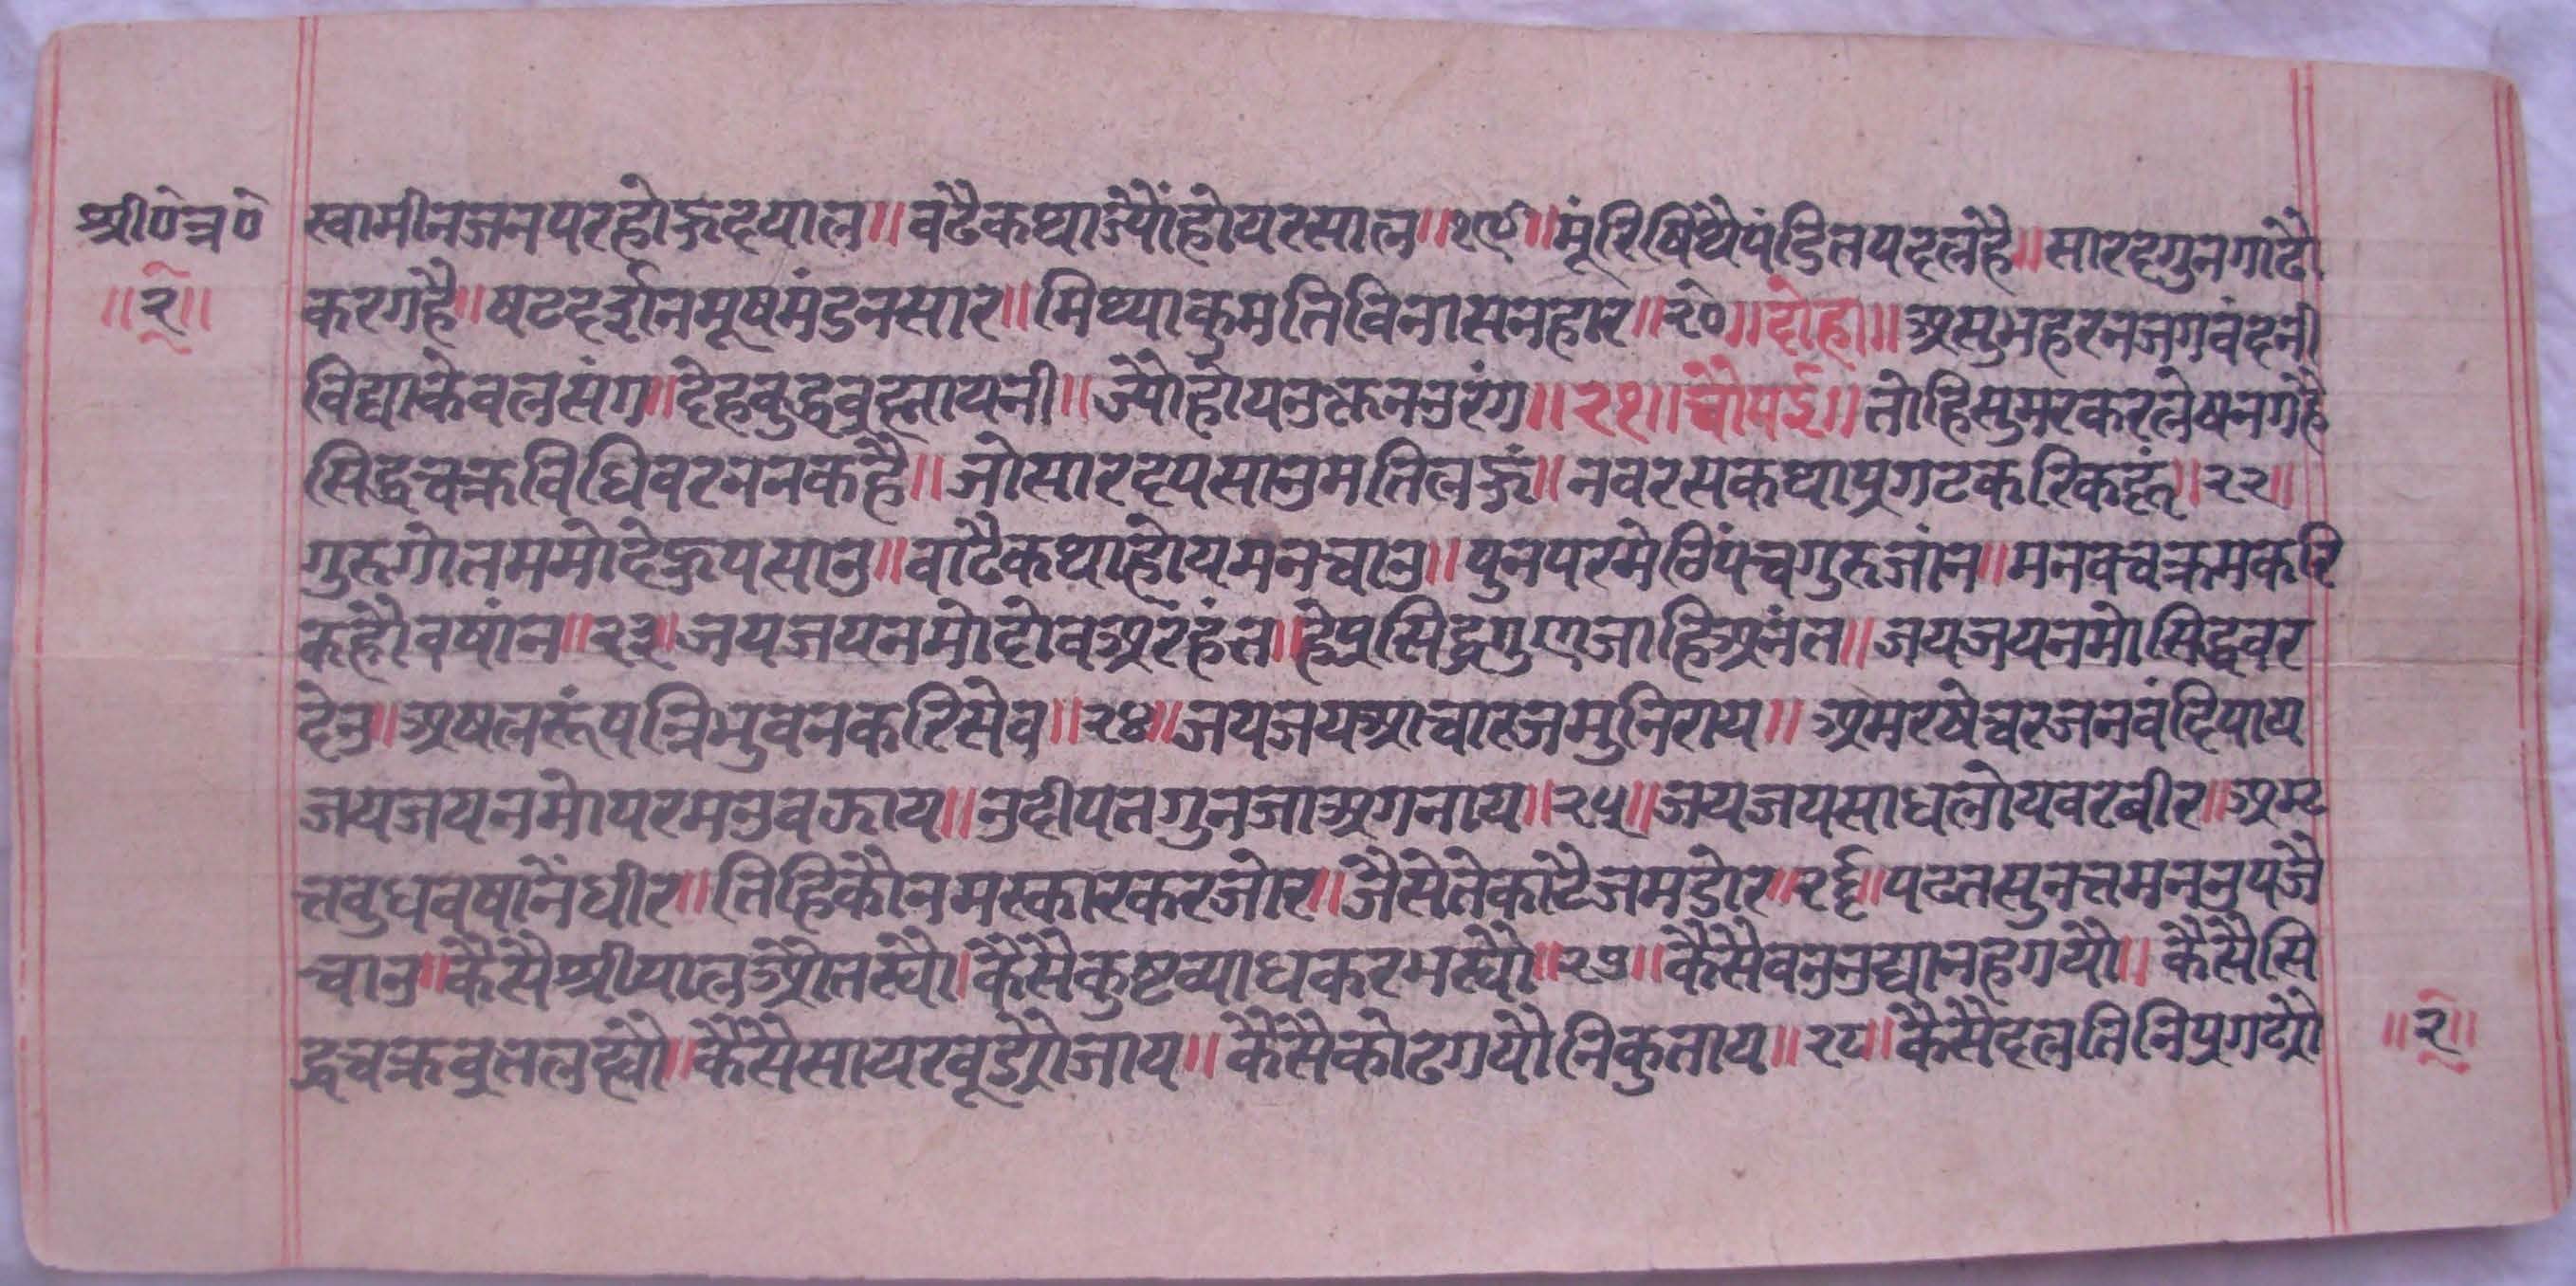 श्री०च०
॥२॥
स्वामीनजनपरहोऊदयाल॥वढैकथाज्यौंहोयरसाल॥१९॥मूंरिषिथैपंडितपदलहै॥सारदगुनगाढौ
करगहै॥षटदर्शनमूषमंडनसार॥मिथ्याकुमतिविनासनहार॥२०॥दोहा॥असुभहरनजगवंदनी
विद्याकेवलसंग॥देहबुद्धवुह्लायनी॥ज्यौहोयउक्तनउरंग॥२१॥चौपई॥तोहिसुमरकरलेषनगहै
सिद्धचक्रविधिवरननकहै॥जोसारदपसाउमतिलऊं॥नवरसकथाप्रगटकरिकहूं॥२२॥
गुरुगोतममोदेऊपसाउ॥वाढैकथाहोयमनचाउ॥पुनपरमेष्ठिपंचगुरुजांन॥मनवचक्रमकरि
कहौवषांन॥२३॥जयजयनमोदेवअरहंत॥हैप्रसिद्धगुणजाहिअनंत॥जयजयनमोसिद्धवर
देउ॥अषलरूंपत्रिभुवनकरिसेव॥२४॥जयजयआचारजमुनिराय॥अमरषेचरजनवंदिपाय
जयजयनमोपरमउवझाय॥नुदीपतगुनजाअगनाय॥२५॥जयजयसाधलोयवरवीर॥अम्ट
त्तवुधवषांनैधीर॥तिहिकौनमस्कारकरजोर॥जैसेतेकाटैजमडोर॥२६॥पढतसुनत्तमनउपजै
चाउ॥कैसैश्रीपालऔतस्यौ॥कैसैकुष्टव्याधकरमस्यौ॥२७॥कैसैवनउद्यानहगयौ॥कैसैसि
द्धचक्रवृतलह्यौ॥कैसैसायरवूडौजाय॥कैसैकोढगयौनिकुताय॥२८॥कैसैदलतिनिप्रगटौ
॥२॥